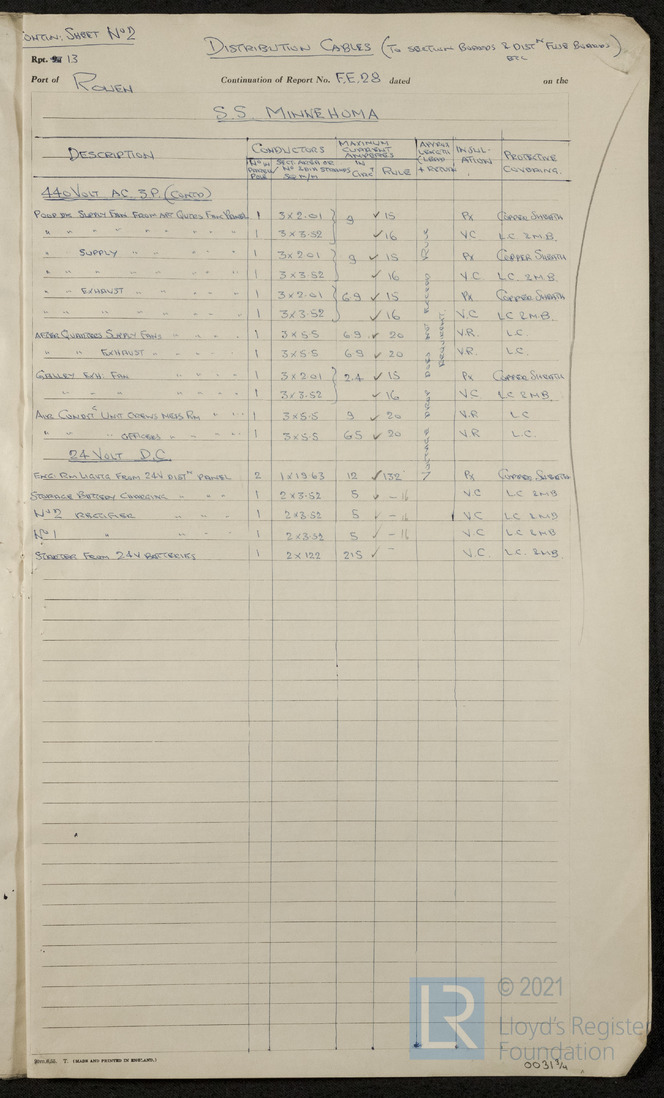 ONTIN. SHEET Nº2
DISTRIBUTION CABLES (TO SECTION BOARDS & DISTN FUSE BOARDS) ETC
Rpt. 13
Port of ROUEN Continuation of Report No. F.E. 28 dated on the
S.S. MINNEHOMA
DESCRIPTION CONDUCTORS MAXIMUM CURRENT AMPERES APPROX LENGTH (LEAD + RETURN INSUL-ATION PROTECTIVE COVERING.
Nº IN POLE SECT. AREA OR Nº & DIA STRANDS SQ M/M IN CIRCT RULE
440 VOLT A.C. 3.P. (CONTD)
POOP DK SUPPLY FAN FROM AFT QTRS FAN PANEL 1 3 x 2.01 } 9 ✓ 15 Px COPPER SHEATH
" " " " " " " " 1 3 x 3.52 ✓ 16 V C L C & M.B.
" SUPPLY " " " " " 1 3 x 2.01 } 9 ✓ 15 Px COPPER SHEATH
" " " " " " " 1 3 x 3.52 ✓ 16 V.C L C & M.B.
" EXHAUST " " " " " 1 3 x 2.01 } 6.9 ✓ 15 Px COPPER SHEATH
" " " " " " " 1 3 x 3.52 ✓ 16 V.C L C & M.B.
AFTER QUARTERS SUPPLY FANS " " " " 1 3 x 5.5 6.9 ✓ 20 V.R. L.C.
" " EXHAUST " " " " " 1 3 x 5.5 6.9 ✓ 20 V.R. L.C.
GALLEY EXH. FAN " " " " 1 3 x 2.01 } 2.4 ✓ 15 Px COPPER SHEATH
" " " " " " " 1 3 x 3.52 ✓ 16 V C L C & M.B.
AIR CONDITG UNIT CREWS MESS RM " " " 1 3 x 5.5 9 ✓ 20 V.R L C
" " " OFFICERS " " " " 1 3 x 5.5 6.5 ✓ 20 V.R L.C.
VOLTAGE DROP DOES NOT EXCEED RULE REQUIREMENT.
24 VOLT D.C.
ENG. RM LIGHTS FROM 24V DISTN PANEL 2 1 x 19.63 12 ✓ 132 Px COPPER SHEATH
STORAGE BATTERY CHARGING " " " 1 2 x 3.52 5 ✓ - 16 V.C L C & M.B
Nº 2 RECTIFIER " " " 1 2 x 3.52 5 ✓ - 16 V.C L C & M.B
Nº 1 " " " " 1 2 x 3.52 5 ✓ - 16 V.C L C & M.B
STARTER FROM 24V BATTERIES 1 2 x 122 215 ✓ - V.C L.C. & M.B.
T. (MADE AND PRINTED IN ENGLAND.)
LR
© 2021
Lloyd's Register
Foundation
0031 3/4